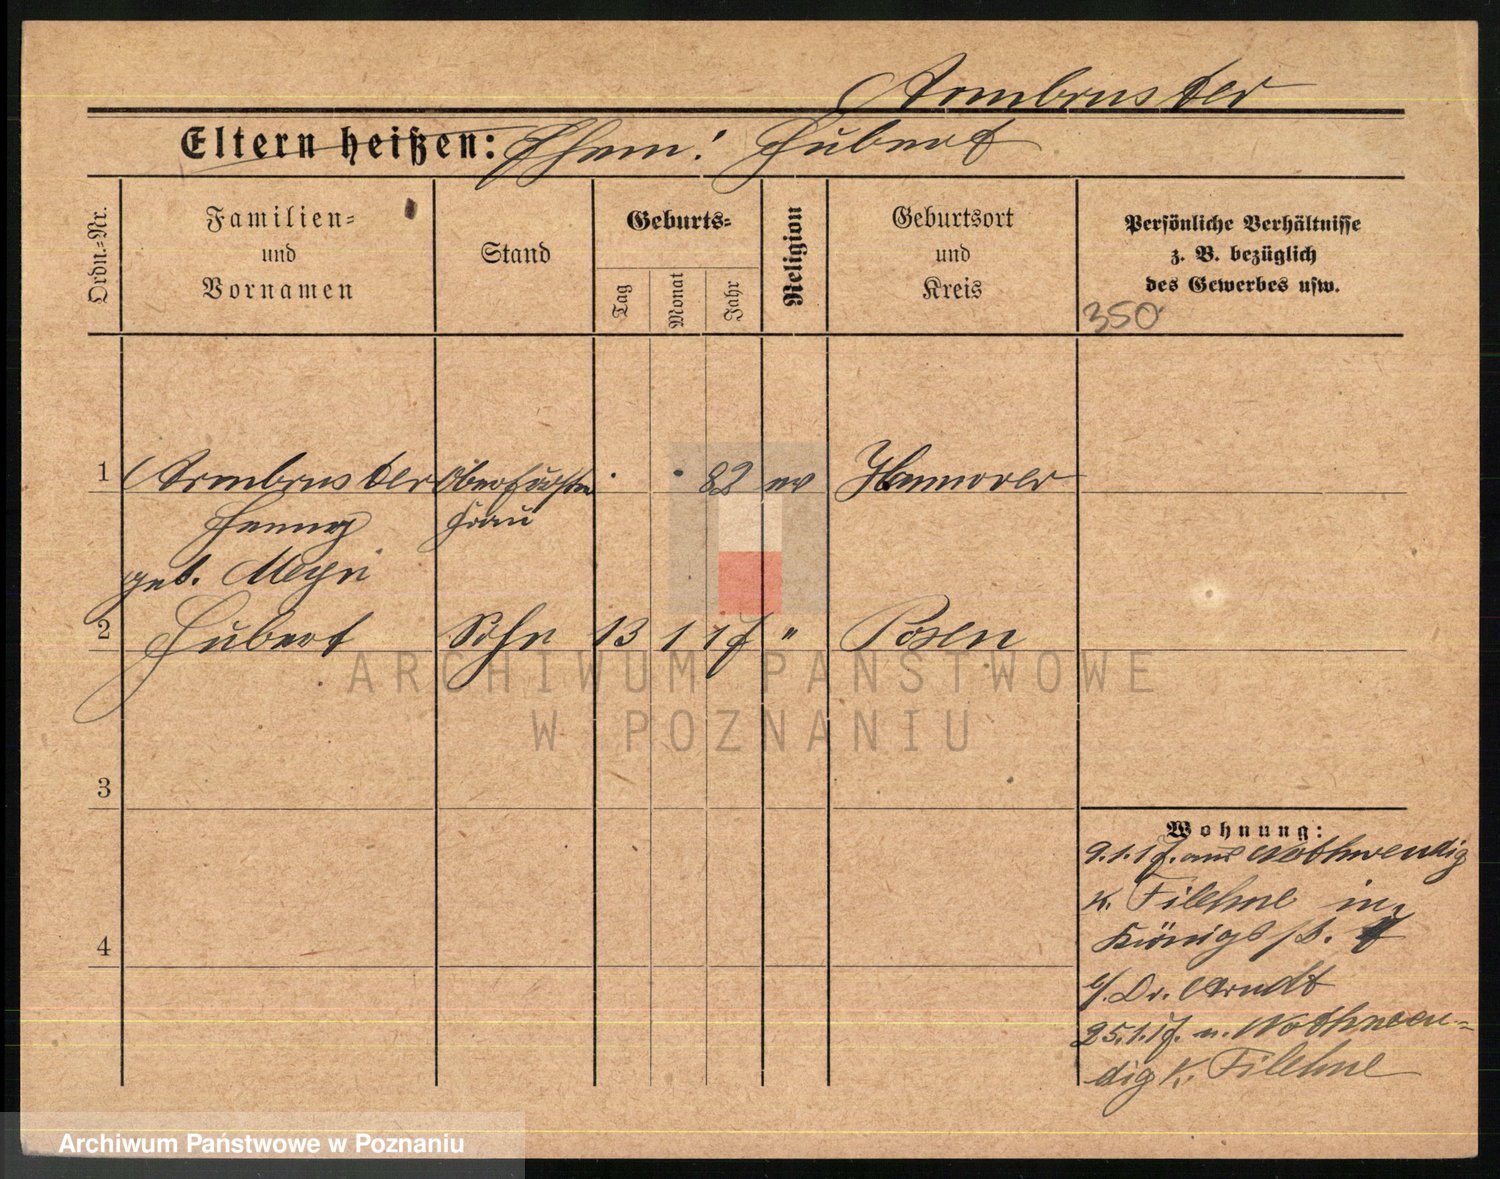 Armbruster
Eltern heißen: Ehem: Hubert
Ordn.-Nr.
Familien-
und
Vornamen
Stand
Geburts-
Tag
Monat
Jahr
Religion
Geburtsort
und
Kreis
Persönliche Verhältnisse
z. B. bezüglich
des Gewerbes usw.
350
1 Armbruster Oberförster 82 ev Hannover
Henny frau
geb. Meyn
2 Hubert Sohn 13 1 17 " Posen
3
4
Wohnung:
9.1.17. aus Nothwendig
K. Filehne in
Königs/pl. 7
b/ Dr. Arndt
25.1.17. n. Nothwen-
dig K. Filehne
ARCHIWUM PAŃSTWOWE
W POZNANIU
Archiwum Państwowe w Poznaniu